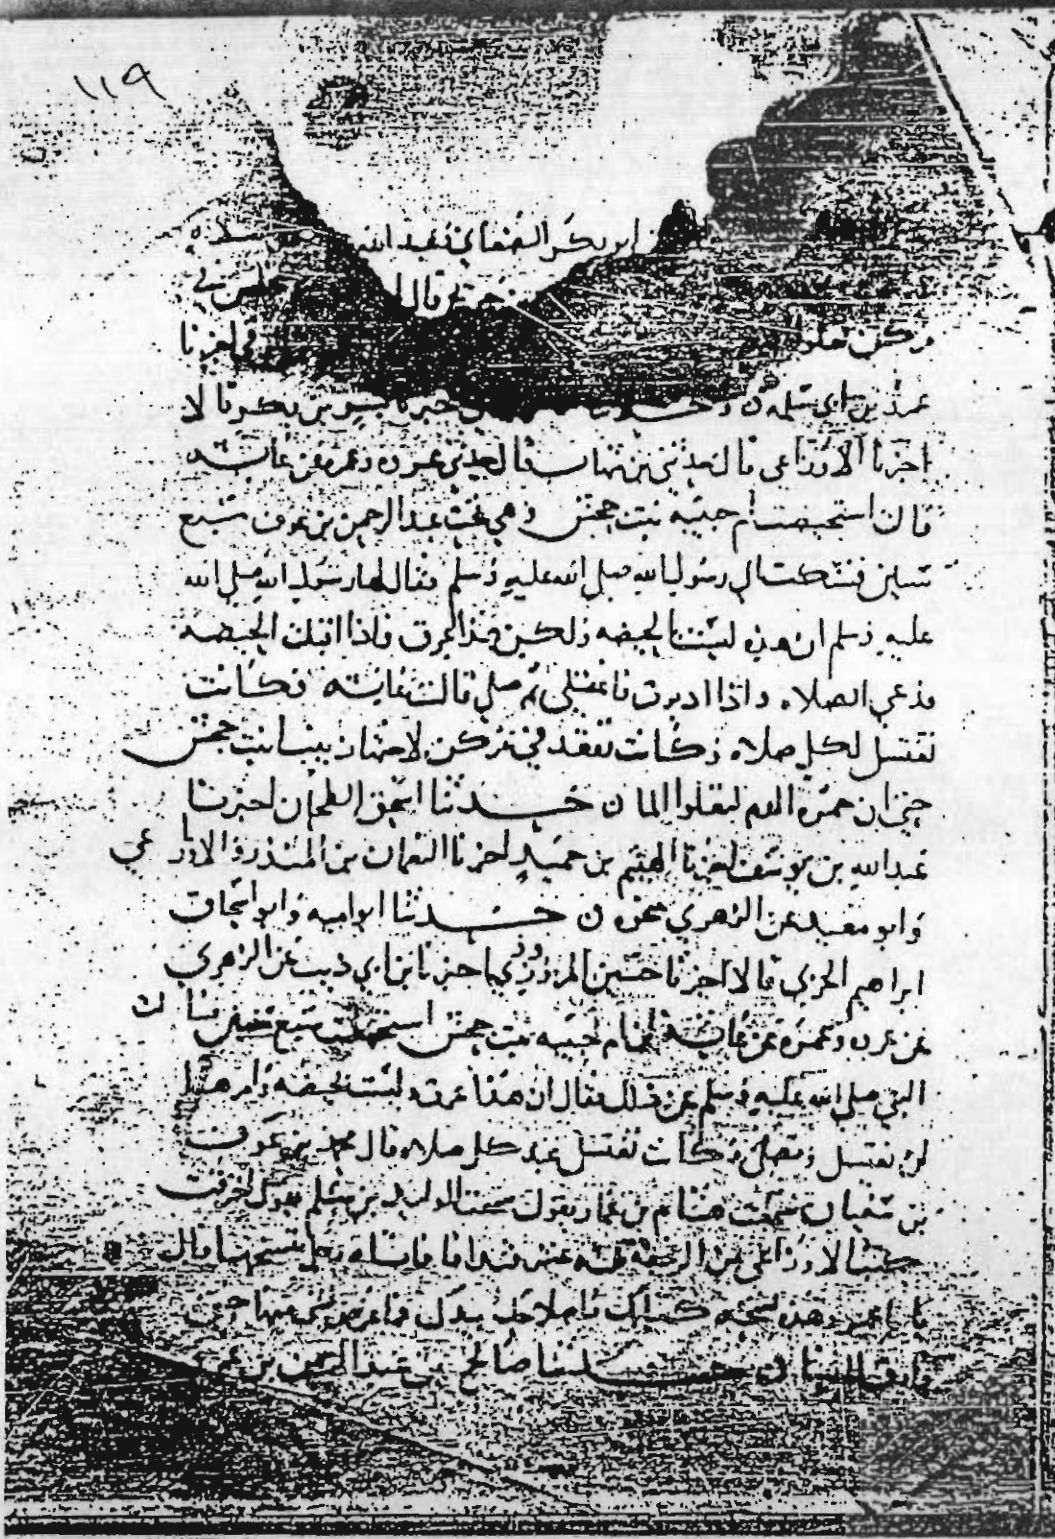 ١١٩
ابو بكر الصنعاني نا عبد الله
قال
مركن تعلو اخبرنا
عمرو بن ابي سلمه ن وحدثنا اخبرنا بشر بن بكر قالا
اخبرنا الاوزاعي قال حدثني بن شهاب قال حدثني عروه وعمره عن عايشه
قالت استحيضت ام حبيبه بنت جحش وهي تحت عبد الرحمن بن عوف سبع
سنين فشكت الي رسول الله صلى الله عليه وسلم فقال لها رسول الله صلى الله
عليه وسلم ان هذه ليست بالحيضه ولكن هذا عرق فاذا اقبلت الحيضه
فدعي الصلاه واذا ادبرت فاغتسلي ثم صلي قالت عايشه فكانت
تغتسل لكل صلاه وكانت تقعد في مركن لاختها زينب ابنت جحش
حتي ان حمره الدم لتعلوا الما ن حدثنا اسحق الطحان اخبرنا
عبد الله بن يوسف اخبرنا الهيثم بن حميد اخبرنا النعمان بن المنذر والاوزاعي
وابو معيد عن الزهري نحوه ن حدثنا ابو اميه وابو اسحاق
ابراهيم الحربي قالا اخبرنا حسين المروروذي اخبرنا ابن ابي ذيب عن الزهري
عن عروه وعمره عن عايشه ان ام حبيبه بنت جحش استحيضت سبع سنين فسالت
النبي صلى الله عليه وسلم عن ذلك فقال ان هذا عرق وليست بحيضه وامرها
ان تغتسل وتصلي وكانت تغتسل عند كل صلاه قال محمد بن عوف
بن سفيان سمعت هشام بن عمار يقول سمعت الوليد بن مسلم يقول احرقت
كتب الاوزاعي من الرجفه ثلثه عشر فنداقا فاتاه رجل بنسخها فقال
يا ابا عمرو هذه نسخه كتابك واصلاحك بيدك فما عرض لشي منها حتى
فارق الدنيا ن حدثنا صالح بن عبد الرحمن بن عمرو